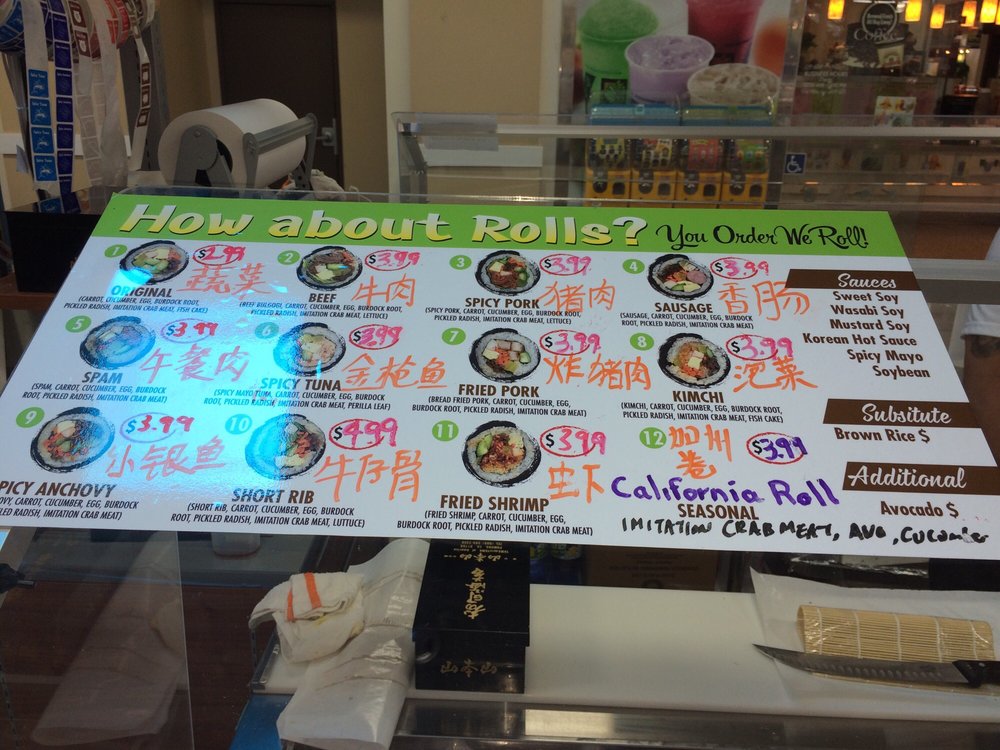 How about Rolls? You Order We Roll!
1 $2.99 蔬菜
ORIGINAL
(CARROT, CUCUMBER, EGG, BURDOCK ROOT,
PICKLED RADISH, IMITATION CRAB MEAT, FISH CAKE)
2 $3.99 牛肉
BEEF
(BEEF BULGOGI, CARROT, CUCUMBER, EGG, BURDOCK ROOT,
PICKLED RADISH, IMITATION CRAB MEAT, LETTUCE)
3 $3.99 猪肉
SPICY PORK
(SPICY PORK, CARROT, CUCUMBER, EGG, BURDOCK
ROOT, PICKLED RADISH, IMITATION CRAB MEAT, LETTUCE)
4 $3.99 香肠
SAUSAGE
(SAUSAGE, CARROT, CUCUMBER, EGG, BURDOCK
ROOT, PICKLED RADISH, IMITATION CRAB MEAT)
5 $3.99 午餐肉
SPAM
(SPAM, CARROT, CUCUMBER, EGG, BURDOCK
ROOT, PICKLED RADISH, IMITATION CRAB MEAT)
6 $3.99 金枪鱼
SPICY TUNA
(SPICY MAYO TUNA, CARROT, CUCUMBER, EGG, BURDOCK
ROOT, PICKLED RADISH, IMITATION CRAB MEAT, PERILLA LEAF)
7 $3.99 炸猪肉
FRIED PORK
(BREAD FRIED PORK, CARROT, CUCUMBER, EGG,
BURDOCK ROOT, PICKLED RADISH, IMITATION CRAB MEAT)
8 $3.99 泡菜
KIMCHI
(KIMCHI, CARROT, CUCUMBER, EGG, BURDOCK ROOT,
PICKLED RADISH, IMITATION CRAB MEAT, FISH CAKE)
9 $3.99 小银鱼
PICY ANCHOVY
OVY, CARROT, CUCUMBER, EGG, BURDOCK
LED RADISH, IMITATION CRAB MEAT)
10 $4.99 牛仔骨
SHORT RIB
(SHORT RIB, CARROT, CUCUMBER, EGG, BURDOCK
ROOT, PICKLED RADISH, IMITATION CRAB MEAT, LUTTUCE)
11 $3.99 虫下
FRIED SHRIMP
(FRIED SHRIMP, CARROT, CUCUMBER, EGG,
BURDOCK ROOT, PICKLED RADISH, IMITATION CRAB MEAT)
12 加州卷 $3.99
California Roll
SEASONAL
IMITATION CRAB MEAT, AVO, CUCUMBER
Sauces
Sweet Soy
Wasabi Soy
Mustard Soy
Korean Hot Sauce
Spicy Mayo
Soybean
Subsitute
Brown Rice $
Additional
Avocado $
山本山